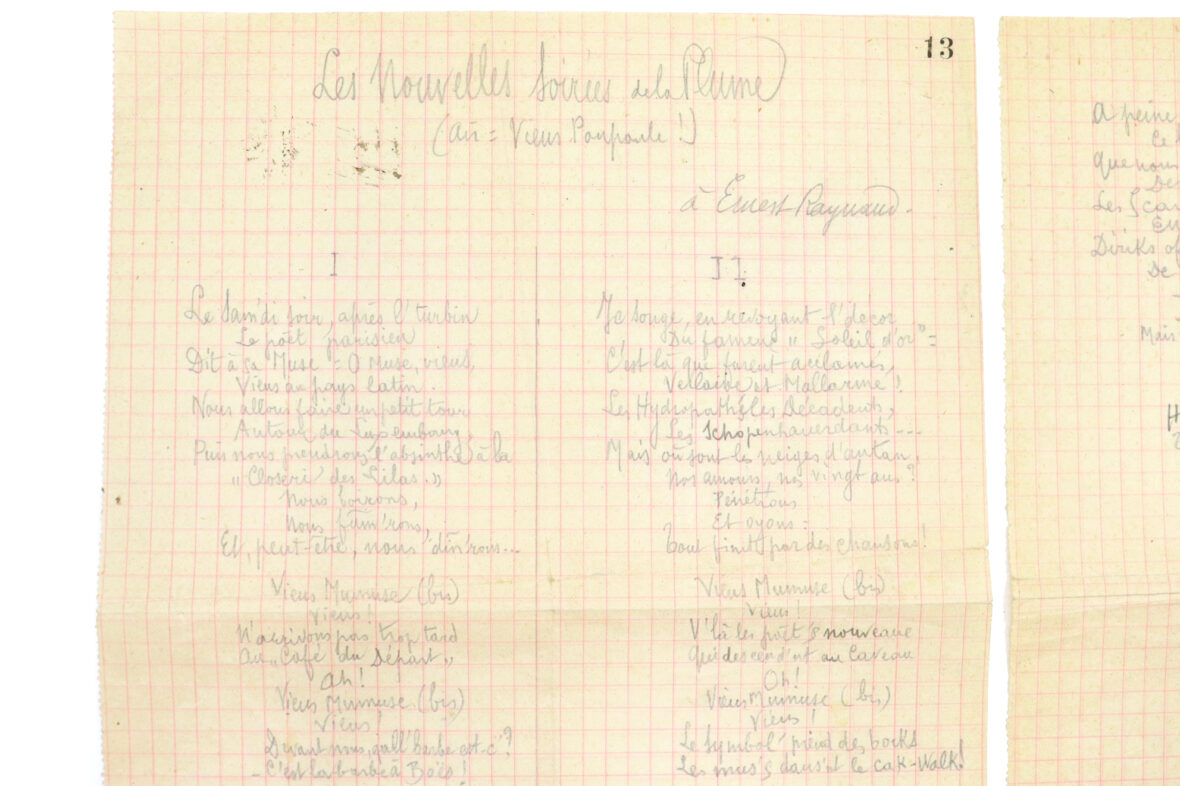 13
Les Nouvelles Soirées de la Plume
(Air = Viens Poupoule !)
à Ernest Raynaud.
I
Le Sam'di soir, après l'turbin
Le poèt' parisien
Dit à sa Muse = O Muse, viens,
Viens au pays latin.
Nous allons faire un petit tour
Autour du Luxembourg,
Puis nous prendrons l'absinthe à la
„ Closeri' des Lilas. »
Nous boirons,
Nous fum'rons,
Et, peut-être, nous dîn'rons...
Viens Mumuse (bis)
Viens !
N'arrivons pas trop tard
Au „ Café du Départ „
Ah !
Viens Mumuse (bis)
Viens !
Devant nous, quell' barbe est-c' ?
- C'est la barbe à Boès !
II
Je songe, en revoyant l'décor
Du fameux „ Soleil d'or" =
C'est là que furent acclamés,
Verlaine et Mallarmé !
Les Hydropath's, les Décadents,
Les Schopenhauerdants ---
Mais où sont les neiges d'antan,
Nos amours, nos vingt ans ?
Pénétrons
Et oyons =
Tout finit par des chansons !
Viens Mumuse (bis)
Viens !
V'là les poèt's nouveaux
Qui descend'nt au Caveau
Oh !
Viens Mumuse (bis)
Viens !
Le symbol' prend des bocks
Les mus's dans'nt le cak-walk !
A peine
Ce
Que nous
Des
Les
Diriks
De
Mais